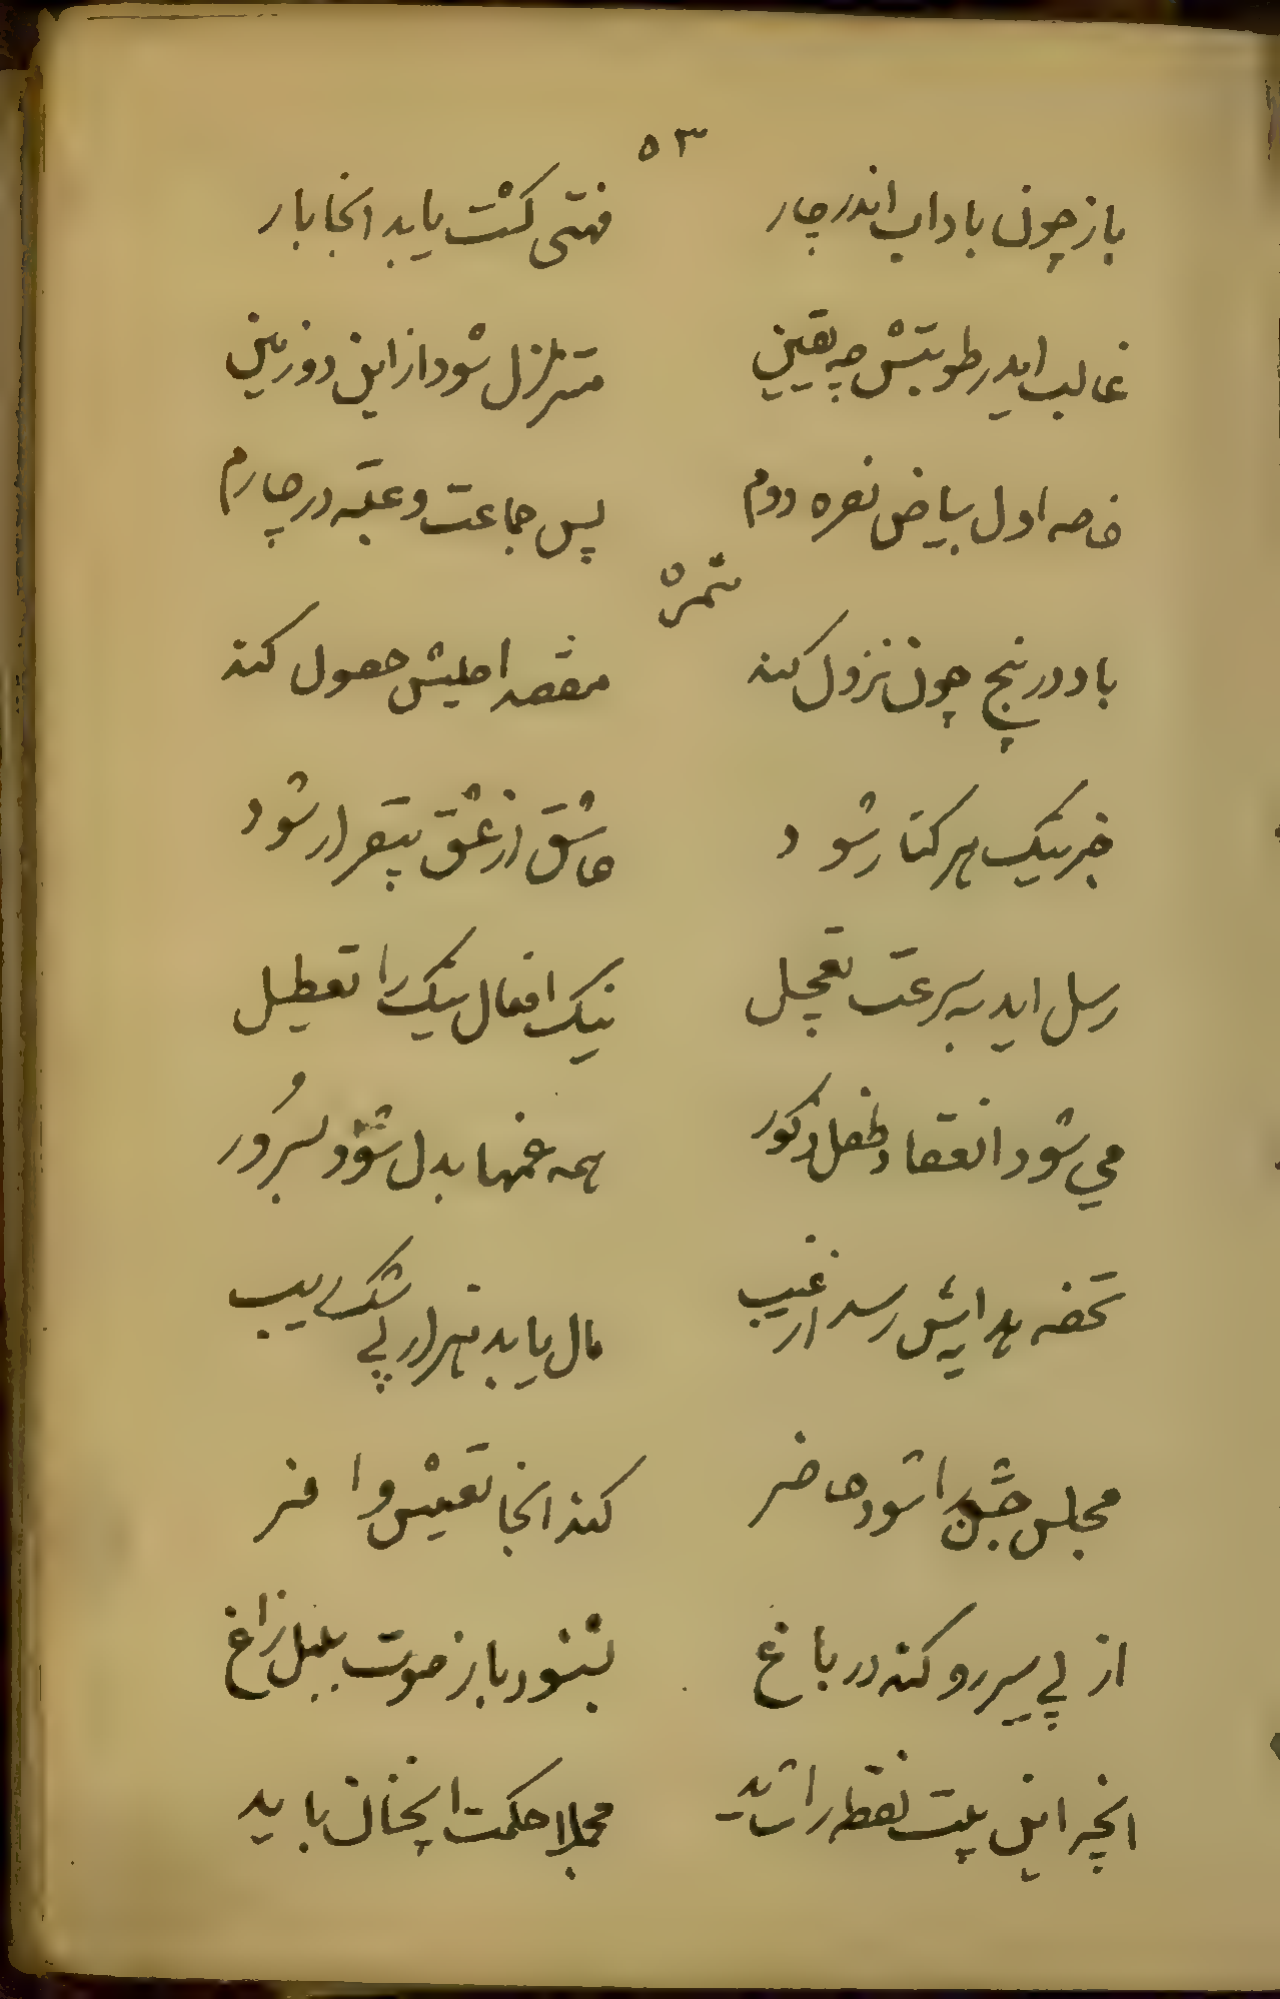 ۵۳
باز چون باد اب اندر چار منتهی کشت یابد انجا بار
غالب اید رطوبتش چه یقین متزلزل شود از این دو زمین
خاصه اول بیاض نعره دوم پس جماعت و عتبه در چارم
ثمره
باد در پنج چون نزول کند مقصد اصلیش حصول کند
خبر نیک هر کنار شود عاشق از عشق بیقرار شود
رسل اید به سرعت تعجیل نیک افعال نیک را تعطیل
می شود انعقاد طفل ذکور همه غمها بدل شود بسُرور
تحفه هدایش رسد از غیب مال یابد هزار بی شک ریب
مجلس جشن را شود حاضر کند انجا تعیش وافر
از پی سیر رو کند در باغ بشنود باز صوت بلبل زاغ
انچه این بیت نقطه را شاید مجملا حکمت انچنان باید